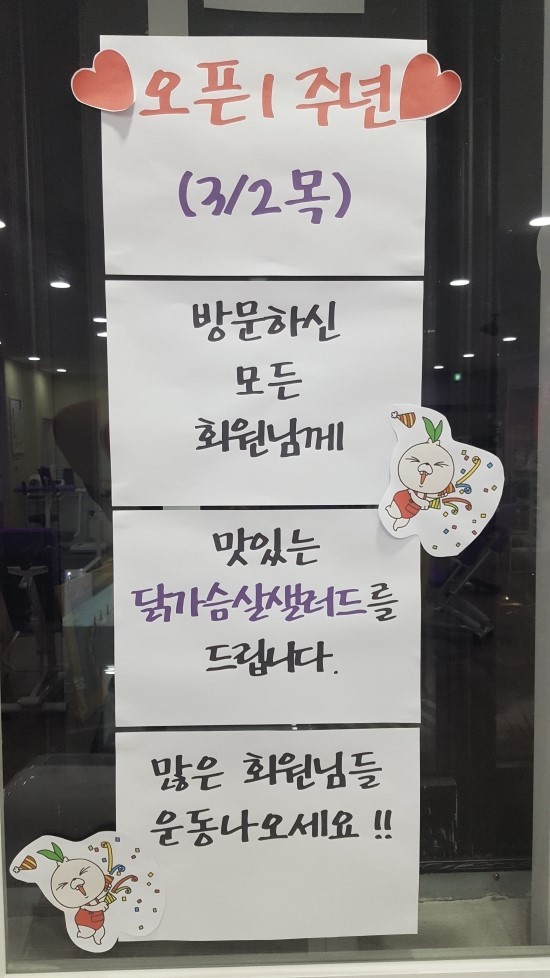 오픈 1 주년
(3/2목)
방문하신
모든
회원님께
맛있는
닭가슴살샐러드를
드립니다.
많은 회원님들
운동나오세요!!